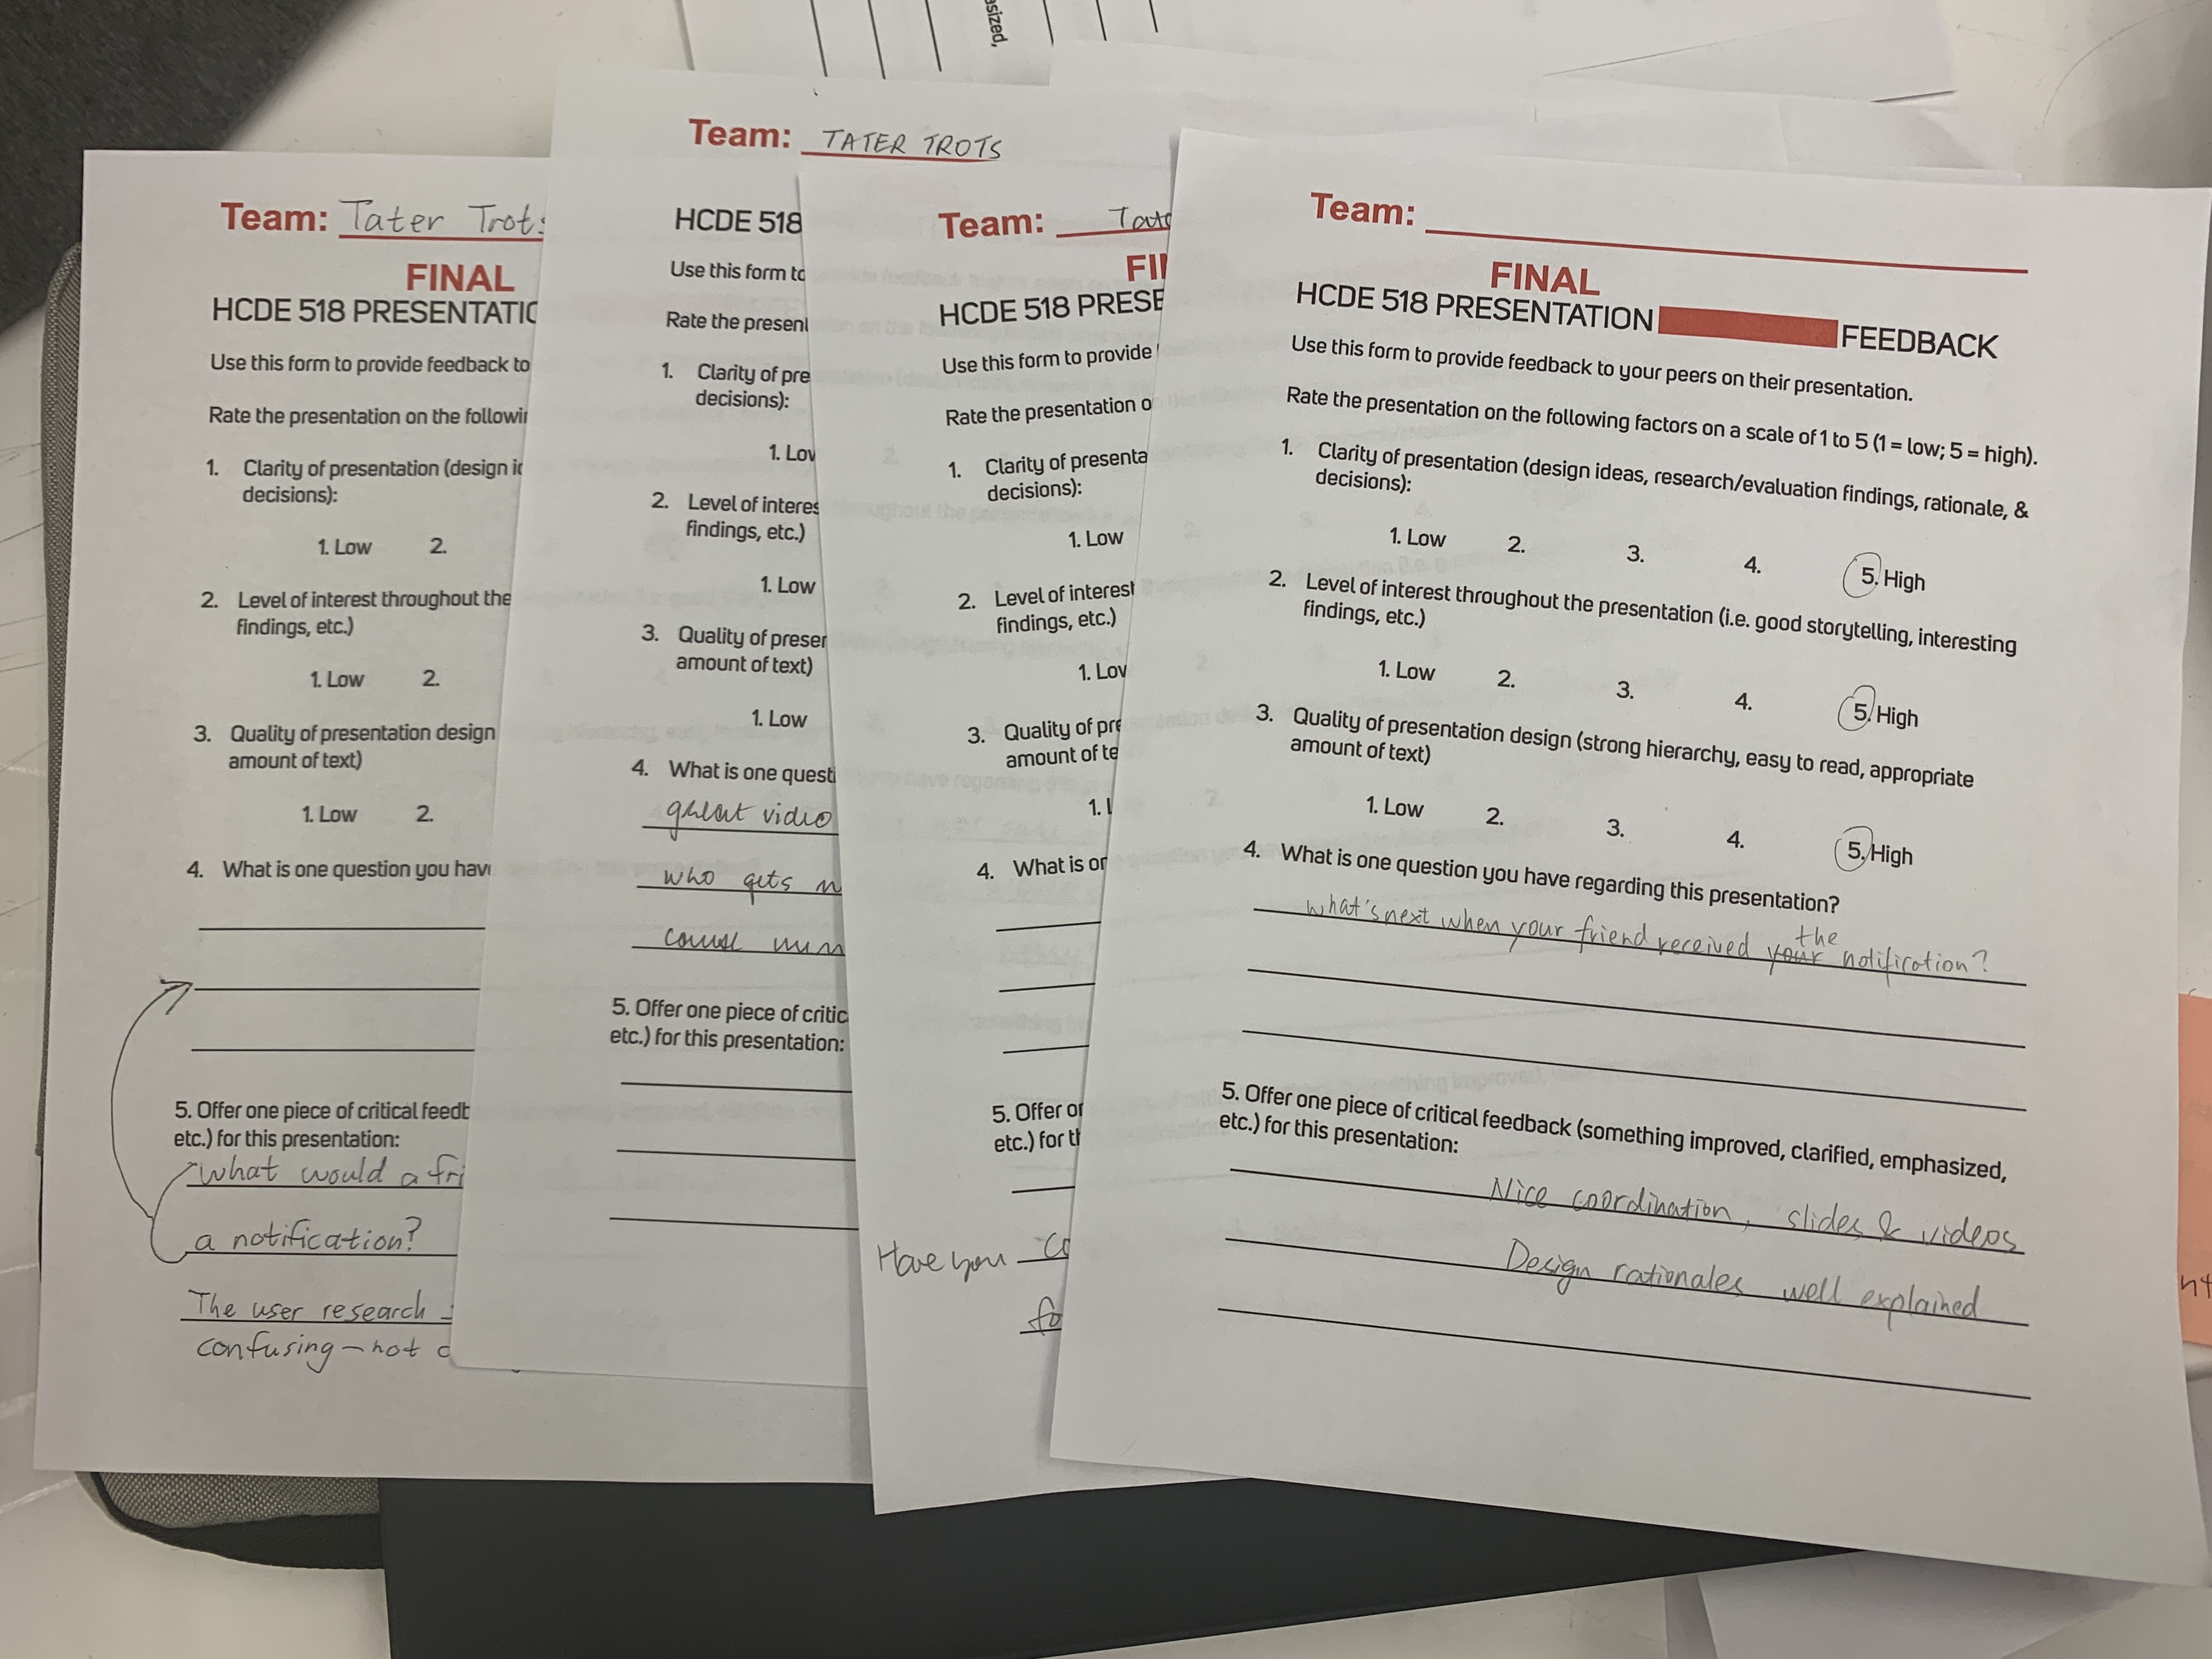 asized,
Team: Tater Trots
FINAL
HCDE 518 PRESENTATIO
Use this form to provide feedback to
Rate the presentation on the followin
1. Clarity of presentation (design id
decisions):
1. Low 2.
2. Level of interest throughout the
findings, etc.)
1. Low 2.
3. Quality of presentation design
amount of text)
1. Low 2.
4. What is one question you hav
5. Offer one piece of critical feedb
etc.) for this presentation:
what would a fri
a notification?
The user research
confusing – not
Team: TATER TROTS
HCDE 518
Use this form to
Rate the present
1. Clarity of pre
decisions):
1. Low
2. Level of interes
findings, etc.)
1. Low
3. Quality of preser
amount of text)
1. Low
4. What is one questi
great video
who gets
5. Offer one piece of critic
etc.) for this presentation:
Team: Tate
FIN
HCDE 518 PRESE
Use this form to provide
Rate the presentation o
1. Clarity of presenta
decisions):
1. Low
2. Level of interest
findings, etc.)
1. Low
3. Quality of pre
amount of te
1. L
4. What is or
5. Offer or
etc.) for th
Have you co
fo
Team:
FINAL
HCDE 518 PRESENTATION FEEDBACK
Use this form to provide feedback to your peers on their presentation.
Rate the presentation on the following factors on a scale of 1 to 5 (1 = low; 5 = high).
1. Clarity of presentation (design ideas, research/evaluation findings, rationale, &
decisions):
1. Low 2. 3. 4. 5. High
2. Level of interest throughout the presentation (i.e. good storytelling, interesting
findings, etc.)
1. Low 2. 3. 4. 5. High
3. Quality of presentation design (strong hierarchy, easy to read, appropriate
amount of text)
1. Low 2. 3. 4. 5. High
4. What is one question you have regarding this presentation?
what's next when your friend received your the notification?
5. Offer one piece of critical feedback (something improved, clarified, emphasized,
etc.) for this presentation:
Nice coordination, slides & videos
Design rationales well explained
nt